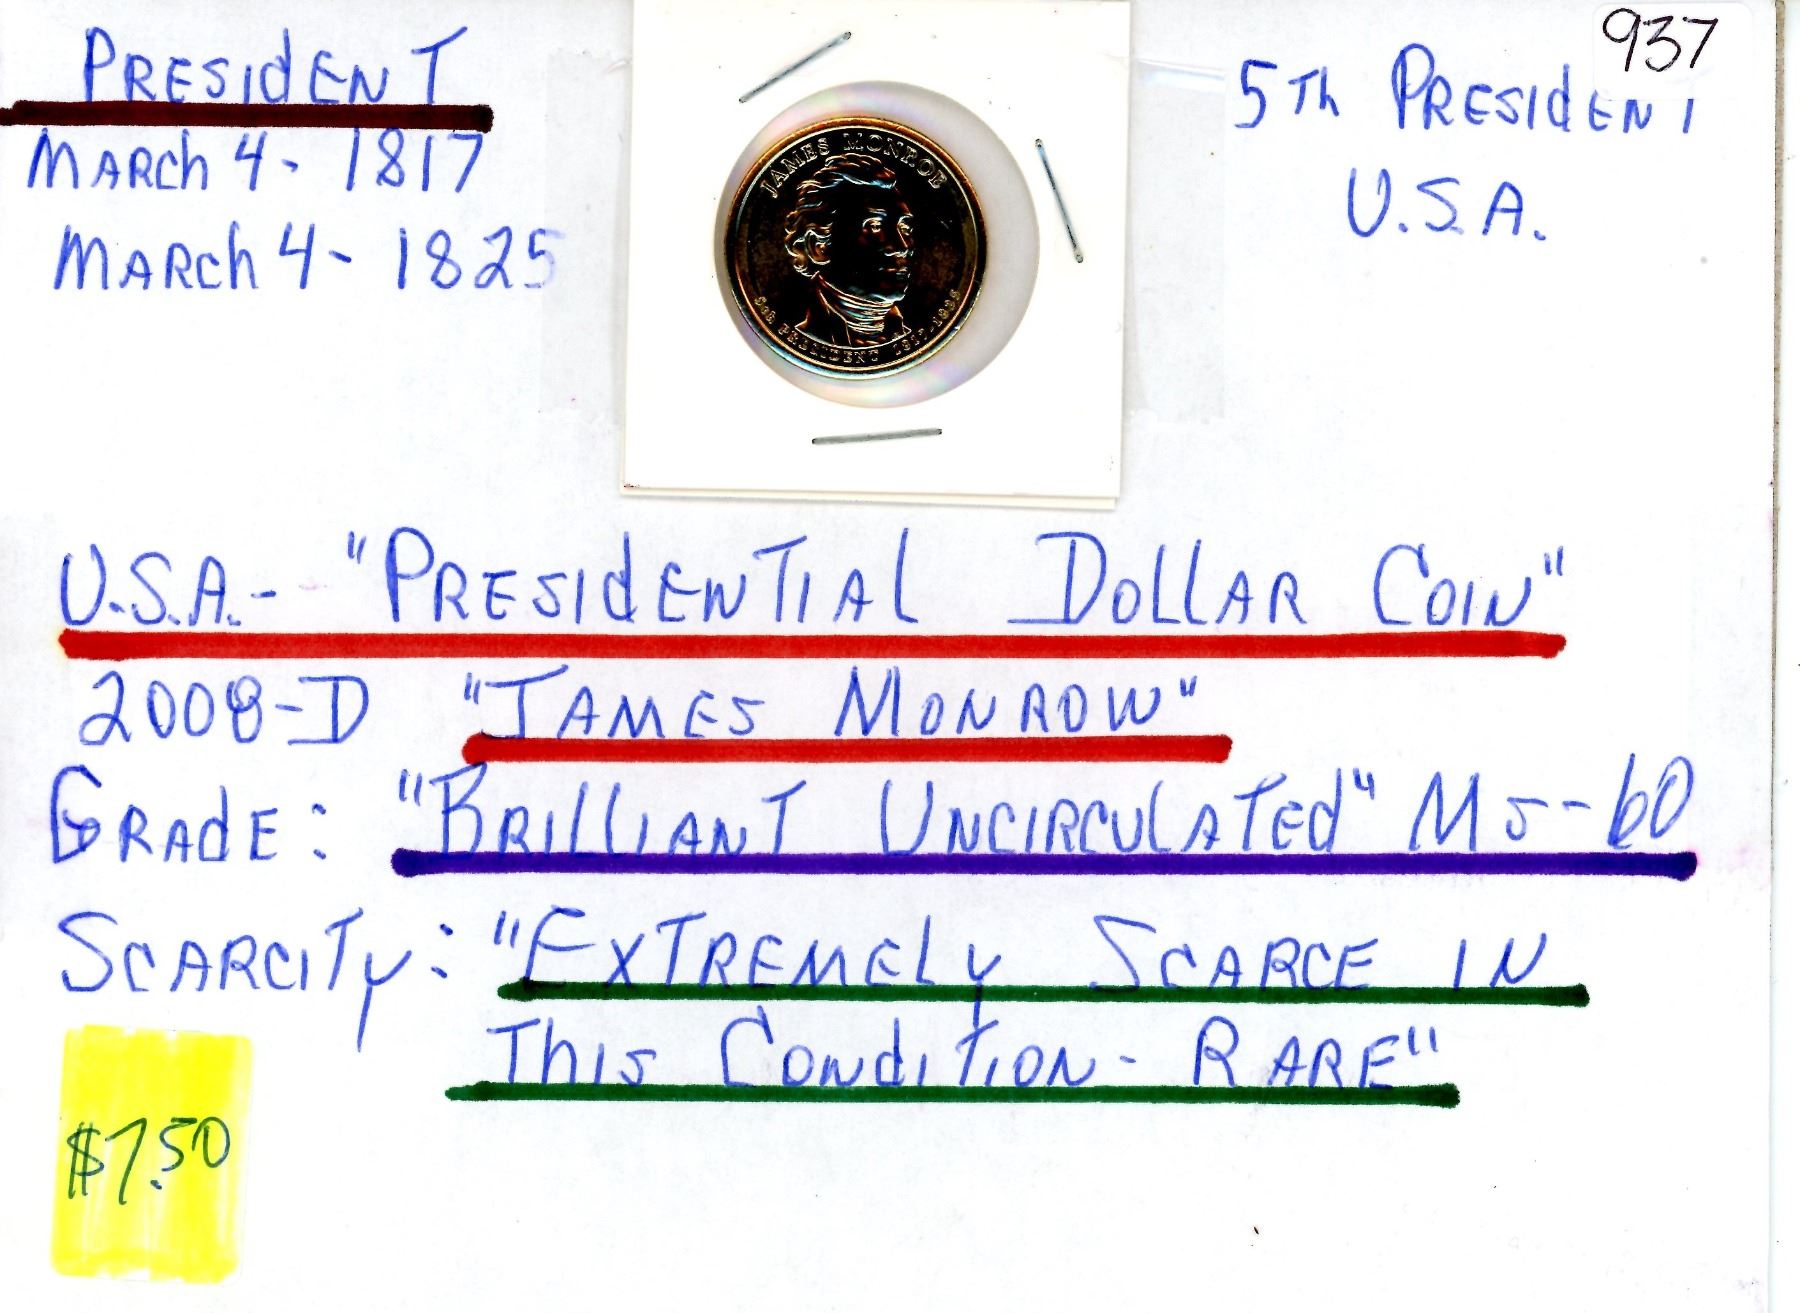 PRESIDENT
MARCH 4 - 1817
MARCH 4 - 1825
JAMES MONROE
5th PRESIDENT 1817-1825
937
5TH PRESIDENT
U.S.A.
U.S.A. - "PRESIDENTIAL DOLLAR COIN"
2008-D "JAMES MONROW"
GRADE: "BRILLIANT UNCIRCULATED" MS-60
SCARCITY: "EXTREMELY SCARCE IN
THIS CONDITION - RARE"
$7.50